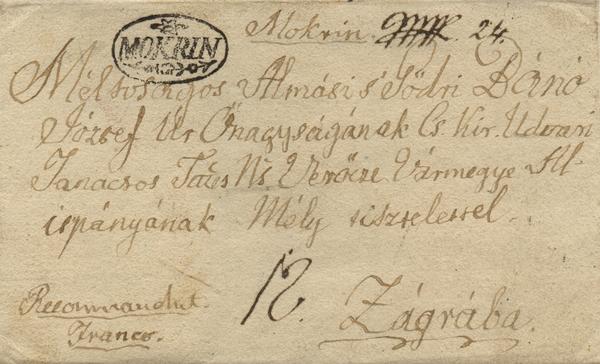 MOKRIN
Mokrin. 24.
Méltóságos Almási s' Gödri Bánó
József Ur Őnagyságának Cs. Kir. Udvari
Tanácsos Ns. Verőcze Vármegye Al-
ispányának Mély tisztelettel.
12.
Recommandirt.
Franco.
Zágrába.